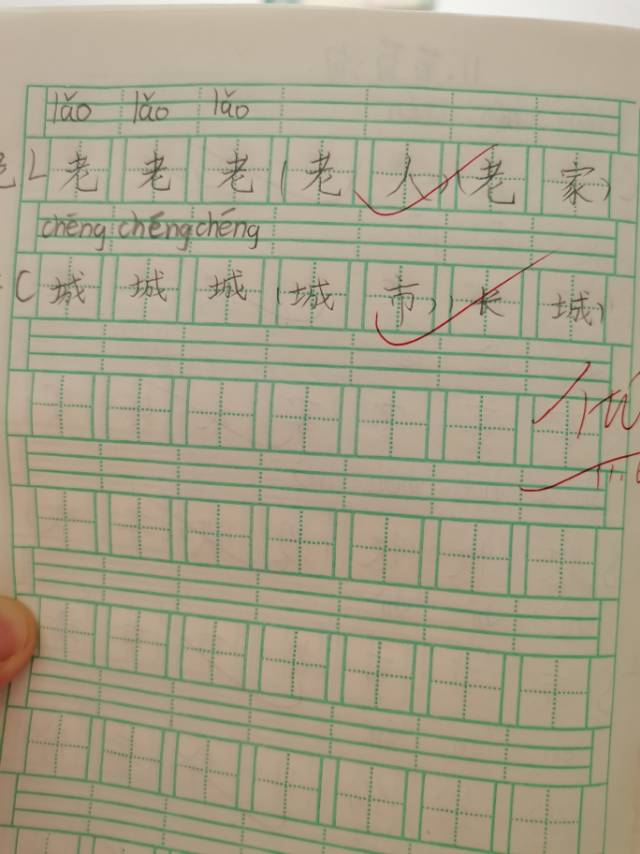 lǎo lǎo lǎo
L 老 老 老 (老 人) (老 家)
chéng chéng chéng
C 城 城 城 (城 市) (长 城)